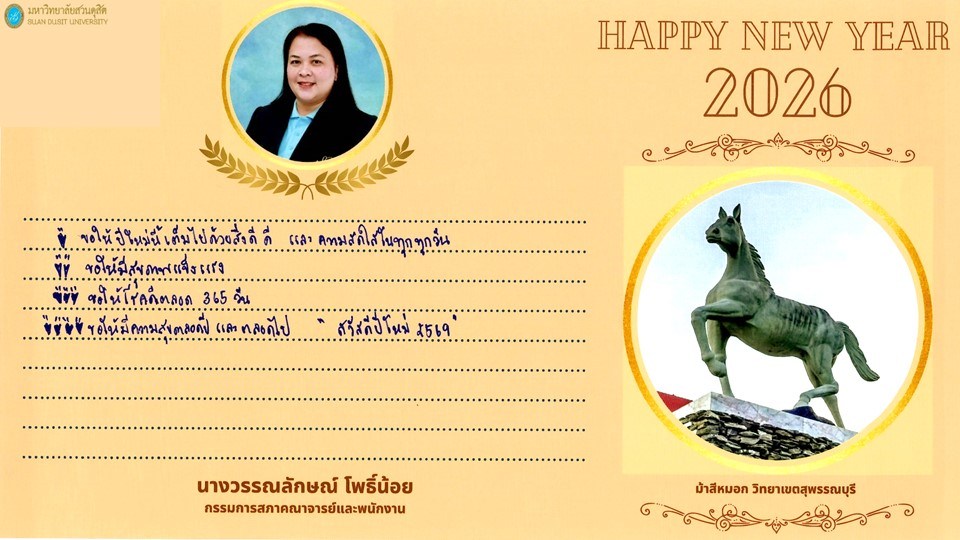 มหาวิทยาลัยสวนดุสิต
SUAN DUSIT UNIVERSITY
HAPPY NEW YEAR
2026
ขอให้ ปีใหม่นี้ เต็มไปด้วยสิ่งดี ดี และ ความสดใสในทุกๆวัน
ขอให้มีสุขภาพแข็งแรง
ขอให้โชคดีตลอด 365 วัน
ขอให้มีความสุขตลอดปี และ ตลอดไป " สวัสดีปีใหม่ 2569 "
นางวรรณลักษณ์ โพธิ์น้อย
กรรมการสภาคณาจารย์และพนักงาน
ม้าสีหมอก วิทยาเขตสุพรรณบุรี